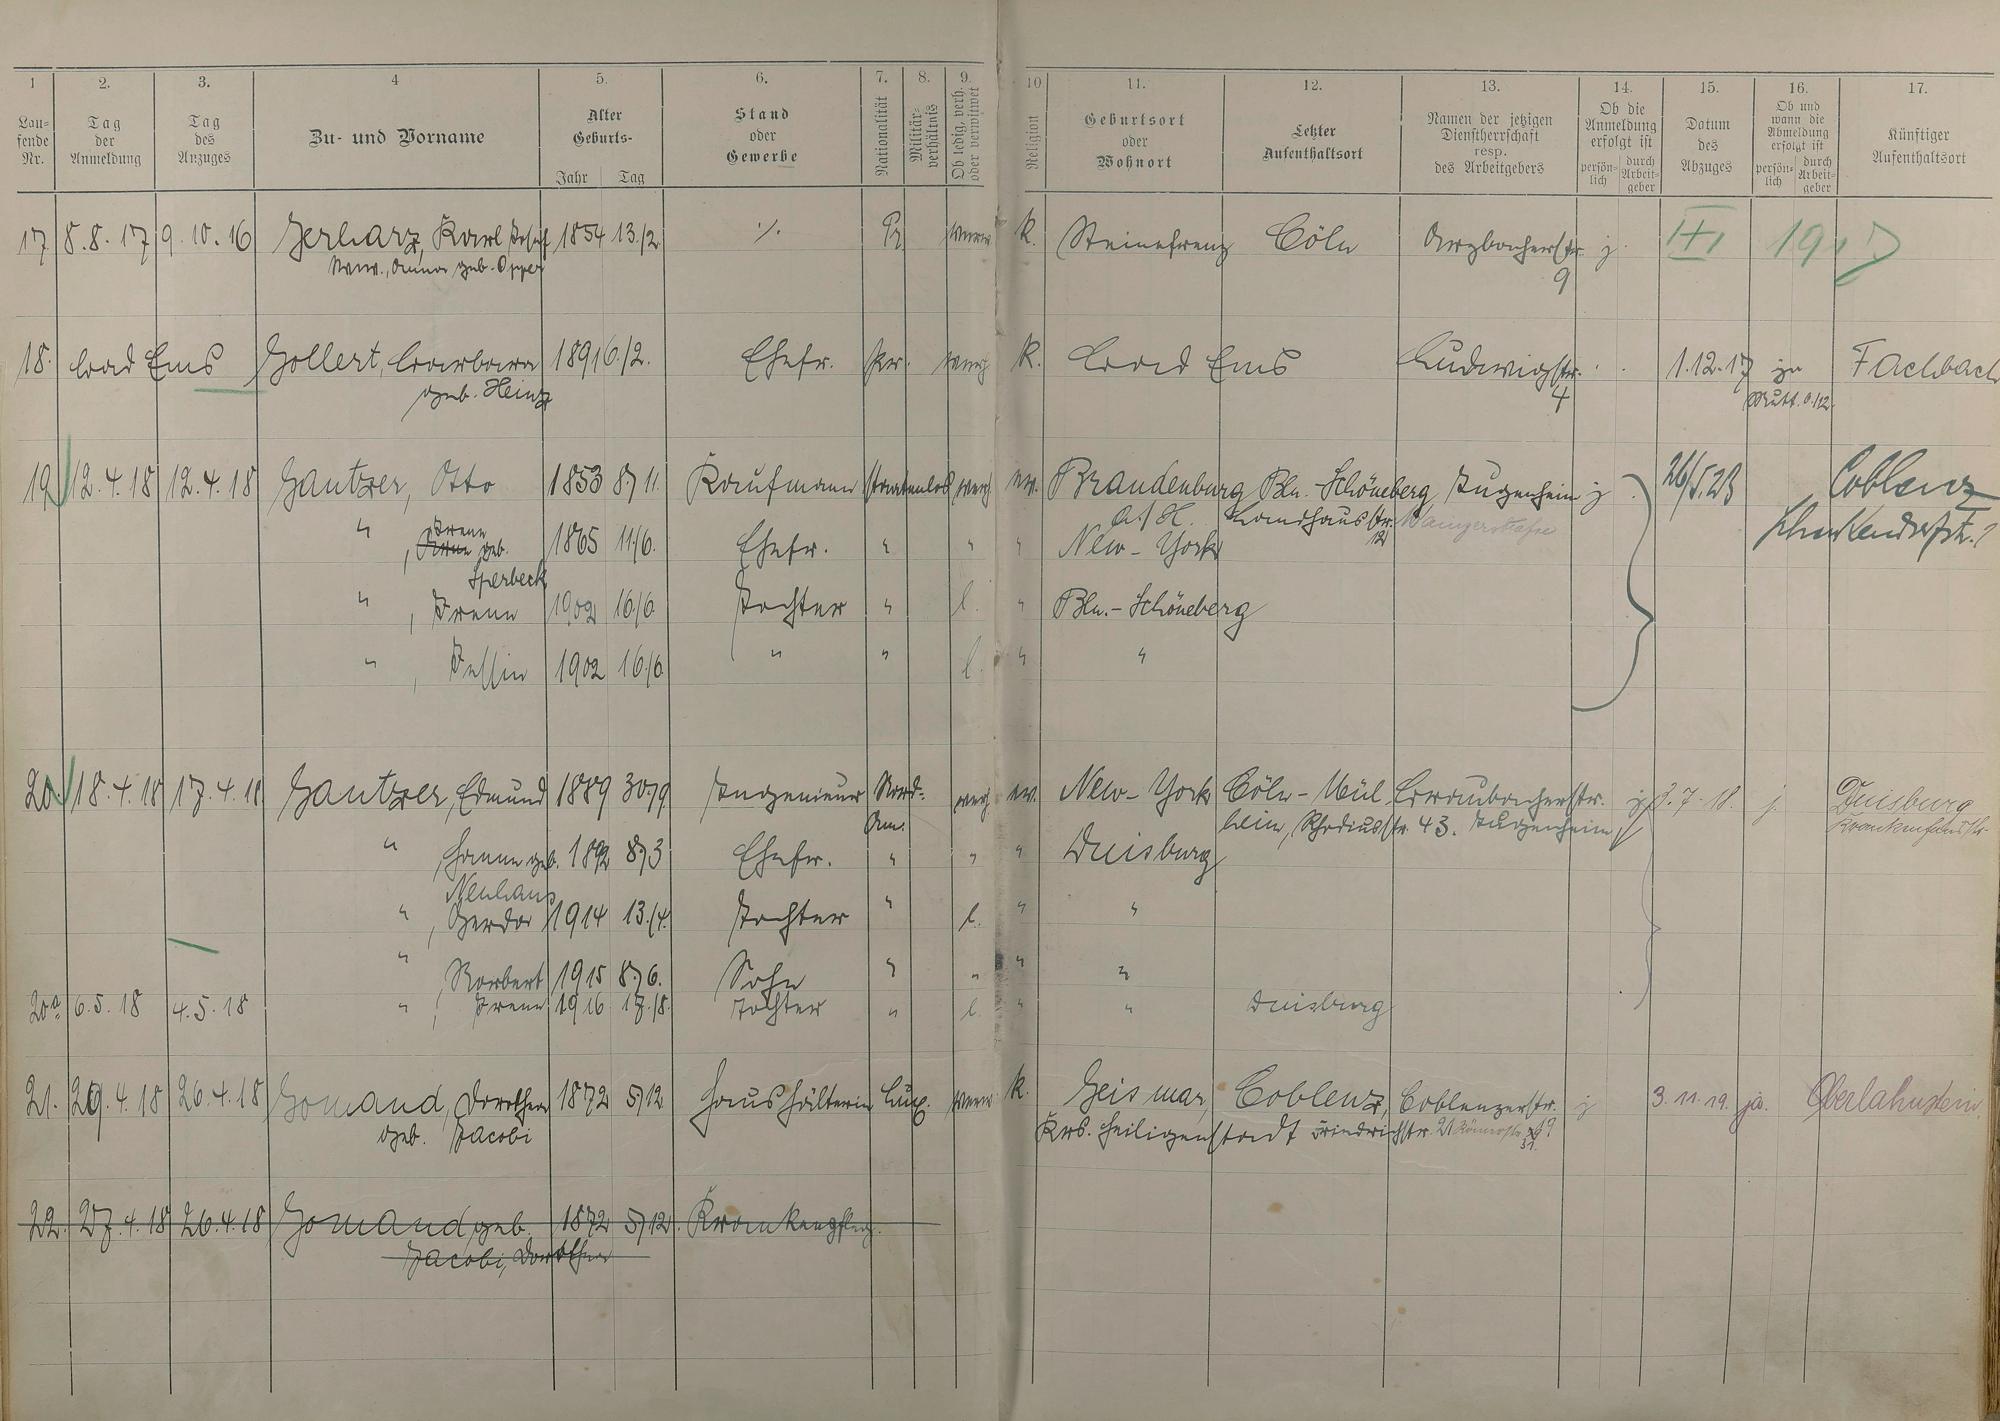 1 2. 3. 4 5. 6. 7. 8. 9. 10 11. 12. 13. 14. 15. 16. 17.
Lau-
fende
Nr.
Tag
der
Anmeldung
Tag
des
Anzuges
Zu- und Vorname
Alter
Geburts-
Jahr Tag
Stand
oder
Gewerbe
Nationalität
Militär-
verhältnis
Ob ledig, verh.
oder verwitwet
Religion
Geburtsort
oder
Wohnort
Letzter
Aufenthaltsort
Namen der jetzigen
Dienstherrschaft
resp.
des Arbeitgebers
Ob die
Anmeldung
erfolgt ist
persön-
lich
durch
Arbeit-
geber
Datum
des
Abzuges
Ob und
wann die
Abmeldung
erfolgt ist
persön-
lich
durch
Arbeit-
geber
Künftiger
Aufenthaltsort
17 8.8.17 9.10.16 Gerharz, Karl Josef 1854 13./2 ·/. Pr. k. Steinefrenz Cöln Arzbacherstr. j. III 1917
Wwe., Anna geb. Opper 9
18. Bad Ems Gollert, Barbara 1891 6./2. Ehefr. Pr. verh. K. Bad Ems Ludwigstr. 1.12.17 ja Fachbach
geb. Heinz 4
19 12.4.18 12.4.18 Gantzer, Otto 1853 8./11. Kaufmann staatenlos verh. ev. Brandenburg Bln.-Schöneberg Jugenheim j 26/5.23 Coblenz
a./H. Landhausstr. Mainzerstraße
12
" , Irene geb. 1865 11/6. Ehefr. " " " New-York
Sperbeck
" , Irene 1902 16/6 Tochter " l. " Bln.-Schöneberg
" , Jessin 1902 16/6 " " l. " "
20. 18.4.18 17.4.18 Gantzer, Edmund 1889 30./9 Ingenieur Nord- verh. ev. New-York Cöln-Mül Braubacherstr. j 3.7.18. j. Duisburg
Am. heim, Rhodiusstr. 43. Jugenheim
" Hanne geb. 1892 8./3 Ehefr. " " " Duisburg
Neuhaus
" , Gerda 1914 13./4. Tochter " l. " "
" , Norbert 1915 8./6. Sohn " " " "
20a 6.5.18 4.5.18 " , Irene 1916 17./8. Tochter " l. " " Duisburg
21. 29.4.18 26.4.18 Gomand, Dorothea 1872 5./12 Haushälterin Lux. verw. k. Geismar, Coblenz, Coblenzerstr. j 3.11.19. ja. Oberlahnstein
geb. Jacobi Krs. Heiligenstadt Friedrichstr. 21 Römerstr.
22. 27.4.18 26.4.18 Gomand geb. 1872 5./12. Krankenpfleg.
Jacobi, Dorothea